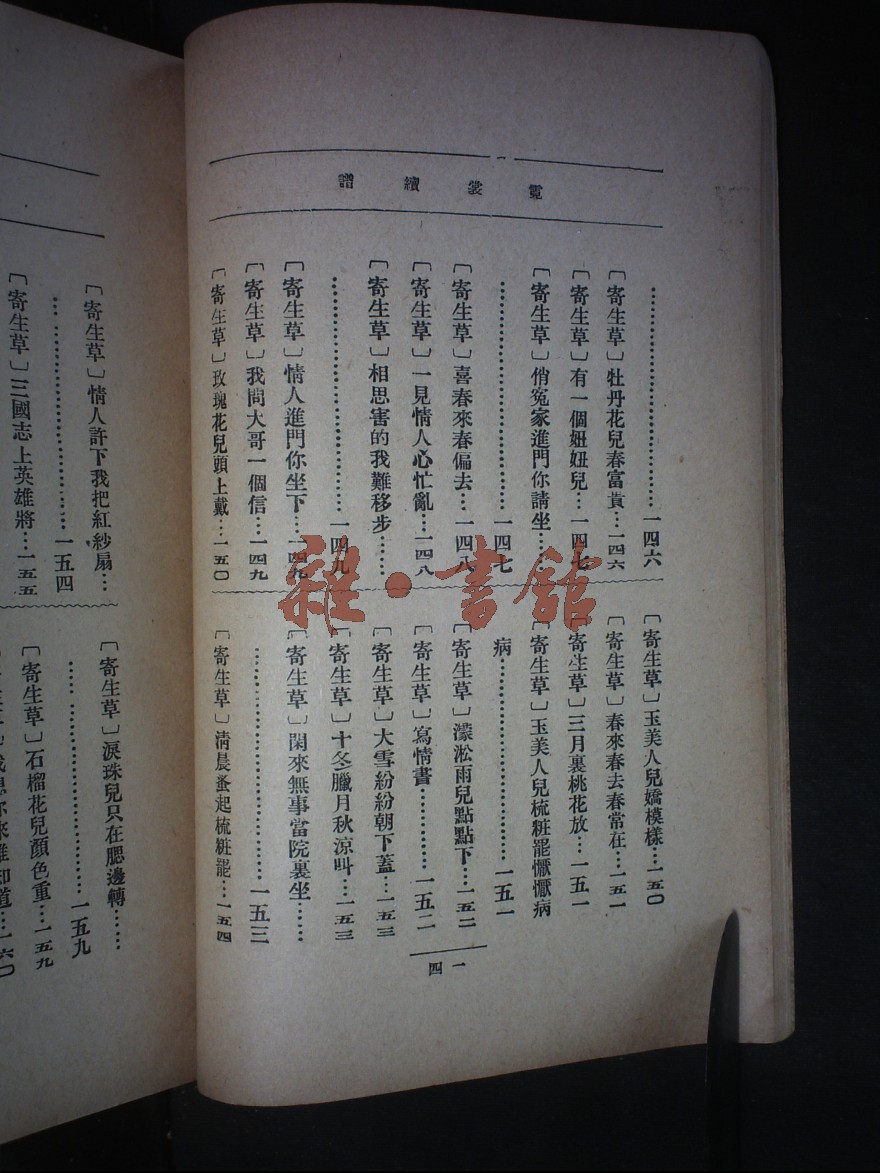 霓裳續譜
……………………一四六
〔寄生草〕牡丹花兒春富貴…一四六
〔寄生草〕有一個妞妞兒…一四七
〔寄生草〕俏冤家進門你請坐……
……………………一四七
〔寄生草〕喜春來春偏去…一四八
〔寄生草〕一見情人心忙亂…一四八
〔寄生草〕相思害的我難移步……
……………………一四九
〔寄生草〕情人進門你坐下…一四九
〔寄生草〕我問大哥一個信…一四九
〔寄生草〕玫瑰花兒頭上戴…一五〇
〔寄生草〕玉美人兒嬌模樣…一五〇
〔寄生草〕春來春去春常在…一五一
〔寄生草〕三月裏桃花放…一五一
〔寄生草〕玉美人兒梳粧罷懨懨病
病……………………一五一
〔寄生草〕濛淞雨兒點點下…一五二
〔寄生草〕寫情書……………一五二
〔寄生草〕大雪紛紛朝下蓋…一五三
〔寄生草〕十冬臘月秋涼叫…一五三
〔寄生草〕閑來無事當院裏坐……
……………………一五三
〔寄生草〕清晨蚤起梳粧罷…一五四
一四
〔寄生草〕情人許下我把紅紗扇…
……………………一五四
〔寄生草〕三國志上英雄將…一五五
〔寄生草〕淚珠兒只在腮邊轉……
……………………一五九
〔寄生草〕石榴花兒顏色重…一五九
你來誰知道…一六〇
雜·書館